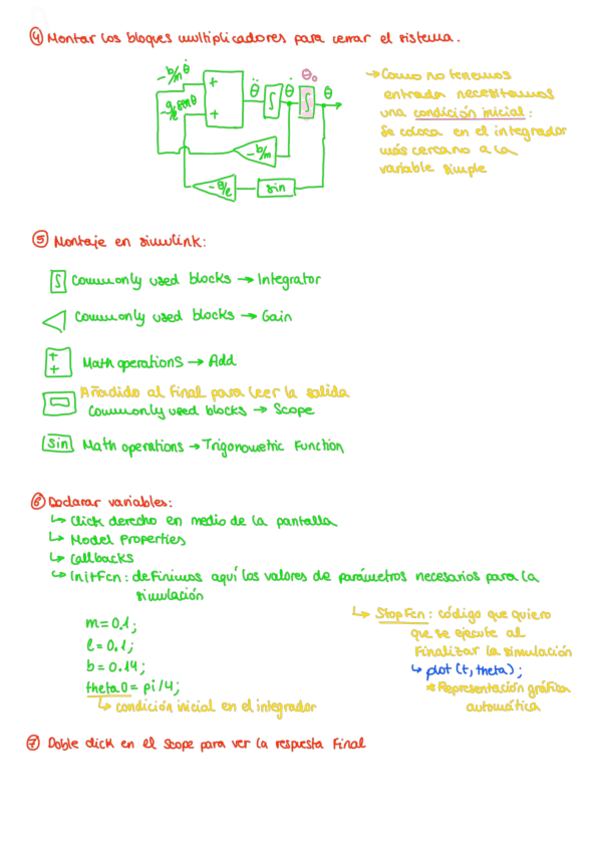 ④ Montar los bloques multiplicadores para cerrar el sistema.
-b/m θ̇
-g/l senθ
+
+
θ̈
∫
θ̇
θ₀
∫
θ
-b/m
-g/l
sin
→ Como no tenemos
entrada necesitamos
una condición inicial:
Se coloca en el integrador
más cercano a la
variable simple
⑤ Montaje en simulink:
∫ Commonly used blocks → Integrator
Commonly used blocks → Gain
+
+
Math operations → Add
Añadido al final para leer la salida
Commonly used blocks → Scope
Sin Math operations → Trigonometric Function
⑥ Declarar variables:
↳ Click derecho en medio de la pantalla
↳ Model Properties
↳ Callbacks
↳ InitFcn: definimos aquí los valores de parámetros necesarios para la
simulación
m=0.1;
l=0.1;
b=0.14;
theta0=pi/4;
↳ condición inicial en el integrador
↳ StopFcn: código que quiero
que se ejecute al
finalizar la simulación
↳ plot(t,theta);
* Representación gráfica
automática
⑦ Doble click en el Scope para ver la respuesta final